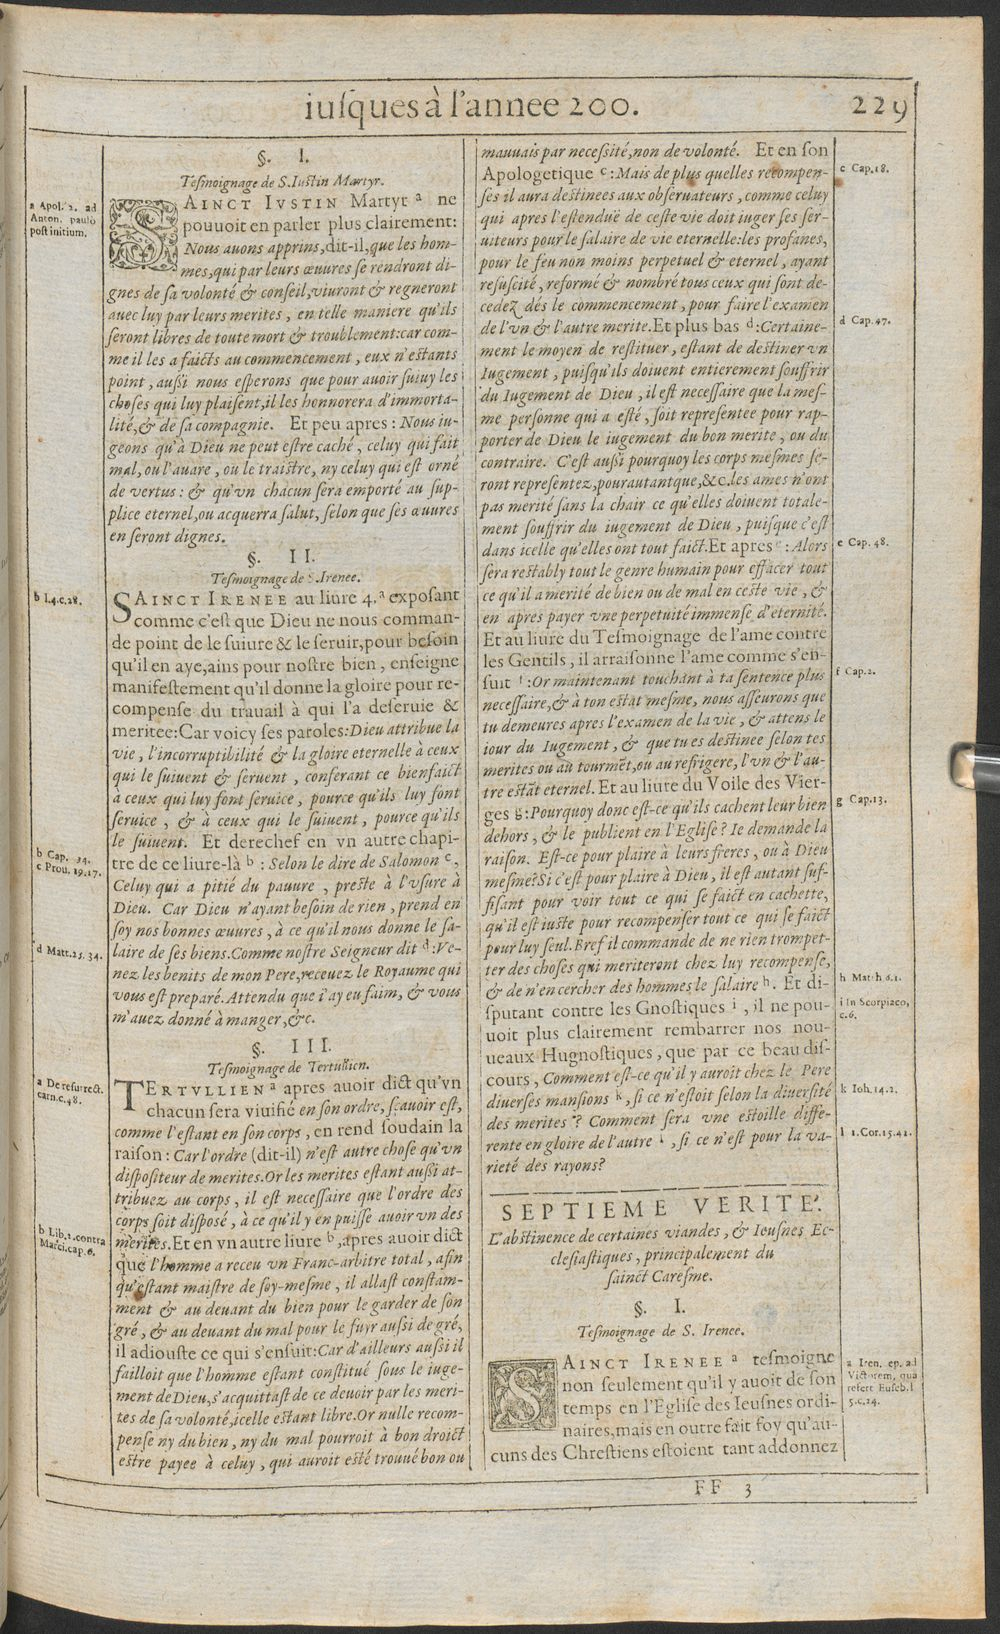 iuſques à l'annee 200.
229
§. I.
Teſmoignage de S. Iuſtin Martyr.
a Apol. 2. ad
Anton. paulò
poſt initium.
SAINCT IVSTIN Martyr a ne
pouuoit en parler plus clairement:
Nous auons apprins, dit-il, que les hom-
mes, qui par leurs œuures ſe rendront di-
gnes de ſa volonté & conſeil, viuront & regneront
auec luy par leurs merites, en telle maniere qu'ils
ſeront libres de toute mort & troublement: car com-
me il les a faicts au commencement, eux n'eſtants
point, auſſi nous eſperons que pour auoir ſuiuy les
choſes qui luy plaiſent, il les honnorera d'immorta-
lité, & de ſa compagnie. Et peu apres: Nous iu-
geons qu'à Dieu ne peut eſtre caché, celuy qui fait
mal, ou l'auare, ou le traiſtre, ny celuy qui eſt orné
de vertus: & qu'vn chacun ſera emporté au ſup-
plice eternel, ou acquerra ſalut, ſelon que ſes œuures
en ſeront dignes.
§. II.
Teſmoignage de S. Irenee.
b l.4.c.28.
SAINCT IRENEE au liure 4. a expoſant
comme c'eſt que Dieu ne nous comman-
de point de le ſuiure & le ſeruir, pour beſoin
qu'il en aye, ains pour noſtre bien, enſeigne
manifeſtement qu'il donne la gloire pour re-
compenſe du trauail à qui l'a deſeruie &
meritee: Car voicy ſes paroles: Dieu attribue la
vie, l'incorruptibilité & la gloire eternelle à ceux
qui le ſuiuent & ſeruent, conferant ce bienfaict
a ceux qui luy font ſeruice, pource qu'ils luy font
ſeruice, & à ceux qui le ſuiuent, pource qu'ils
le ſuiuent. Et derechef en vn autre chapi-
tre de ce liure-là b : Selon le dire de Salomon c,
Celuy qui a pitié du pauure, preſte à l'vſure à
Dieu. Car Dieu n'ayant beſoin de rien, prend en
ſoy nos bonnes œuures, à ce qu'il nous donne le ſa-
laire de ſes biens. Comme noſtre Seigneur dit d : Ve-
nez les benits de mon Pere, receuez le Royaume qui
vous eſt preparé. Attendu que i'ay eu faim, & vous
m'auez donné à manger, &c.
b Cap. 34.
c Prou. 19.17.
d Matt. 25. 34.
§. III.
Teſmoignage de Tertullien.
a De reſurrect.
carn. c. 48.
TERTVLLIEN a apres auoir dict qu'vn
chacun ſera viuifié en ſon ordre, ſçauoir eſt,
comme l'eſtant en ſon corps, en rend ſoudain la
raiſon: Car l'ordre (dit-il) n'eſt autre choſe qu'vn
diſpoſiteur de merites. Or les merites eſtant auſſi at-
tribuez au corps, il eſt neceſſaire que l'ordre des
corps ſoit diſpoſé, à ce qu'il y en puiſſe auoir vn des
merites. Et en vn autre liure b, apres auoir dict
que l'homme a receu vn Franc-arbitre total, afin
qu'eſtant maiſtre de ſoy-meſme, il allaſt conſtam-
ment & au deuant du bien pour le garder de ſon
gré, & au deuant du mal pour le fuyr auſſi de gré,
il adiouſte ce qui s'enſuit: Car d'ailleurs auſſi il
failloit que l'homme eſtant conſtitué ſous le iuge-
ment de Dieu, s'acquittaſt de ce deuoir par les meri-
tes de ſa volonté, icelle eſtant libre. Or nulle recom-
penſe ny du bien, ny du mal pourroit à bon droict
eſtre payee à celuy, qui auroit eſté trouué bon ou
b Lib. 2. contra
Marci. cap. 6.
mauuais par neceſſité, non de volonté. Et en ſon
Apologetique c : Mais de plus quelles recompen-
ſes il aura deſtinees aux obſeruateurs, comme celuy
qui apres l'eſtenduë de ceſte vie doit iuger ſes ſer-
uiteurs pour le ſalaire de vie eternelle: les profanes,
pour le feu non moins perpetuel & eternel, ayant
reſuſcité, reformé & nombré tous ceux qui ſont de-
cedez dés le commencement, pour faire l'examen
de l'vn & l'autre merite. Et plus bas d : Certaine-
ment le moyen de reſtituer, eſtant de deſtiner vn
Iugement, puiſqu'ils doiuent entierement ſouffrir
du Iugement de Dieu, il eſt neceſſaire que la meſ-
me perſonne qui a eſté, ſoit repreſentee pour rap-
porter de Dieu le iugement du bon merite, ou du
contraire. C'eſt auſſi pourquoy les corps meſmes ſe-
ront repreſentez, pour autant que, &c. les ames n'ont
pas merité ſans la chair ce qu'elles doiuent totale-
ment ſouffrir du iugement de Dieu, puiſque c'eſt
dans icelle qu'elles ont tout faict. Et apres e : Alors
ſera reſtably tout le genre humain pour effacer tout
ce qu'il a merité de bien ou de mal en ceſte vie, &
en apres payer vne perpetuité immenſe d'eternité.
Et au liure du Teſmoignage de l'ame contre
les Gentils, il arraiſonne l'ame comme s'en-
ſuit f : Or maintenant touchant à ta ſentence plus
neceſſaire, & à ton eſtat meſme, nous aſſeurons que
tu demeures apres l'examen de la vie, & attens le
iour du Iugement, & que tu es deſtinee ſelon tes
merites ou au tourmēt, ou au refrigere, l'vn & l'au-
tre eſtāt eternel. Et au liure du Voile des Vier-
ges g : Pourquoy donc eſt-ce qu'ils cachent leur bien
dehors, & le publient en l'Egliſe? Ie demande la
raiſon. Eſt-ce pour plaire à leurs freres, ou à Dieu
meſme? Si c'eſt pour plaire à Dieu, il eſt autant ſuf-
fiſant pour voir tout ce qui ſe faict en cachette,
qu'il eſt iuſte pour recompenſer tout ce qui ſe faict
pour luy ſeul. Bref il commande de ne rien trompet-
ter des choſes qui meriteront chez luy recompenſe,
& de n'en cercher des hommes le ſalaire h. Et di-
ſputant contre les Gnoſtiques i, il ne pou-
uoit plus clairement rembarrer nos nou-
ueaux Hugnoſtiques, que par ce beau diſ-
cours, Comment eſt-ce qu'il y auroit chez le Pere
diuerſes manſions k, ſi ce n'eſtoit ſelon la diuerſité
des merites? Comment ſera vne eſtoille diffe-
rente en gloire de l'autre l, ſi ce n'eſt pour la va-
rieté des rayons?
c Cap. 18.
d Cap. 47.
e Cap. 48.
f Cap. 2.
g Cap. 13.
h Matth. 6. 1.
i In Scorpiaco,
c. 6.
k Ioh. 14. 2.
l 1. Cor. 15. 41.
SEPTIEME VERITE'.
L'abſtinence de certaines viandes, & Ieuſnes Ec-
cleſiaſtiques, principalement du
ſainct Careſme.
§. I.
Teſmoignage de S. Irenee.
SAINCT IRENEE a teſmoigne
non ſeulement qu'il y auoit de ſon
temps en l'Egliſe des Ieuſnes ordi-
naires, mais en outre fait foy qu'au-
cuns des Chreſtiens eſtoient tant addonnez
a Iren. ep. ad
Victorem, qua
refert Euſeb. l
5. c. 24.
FF 3